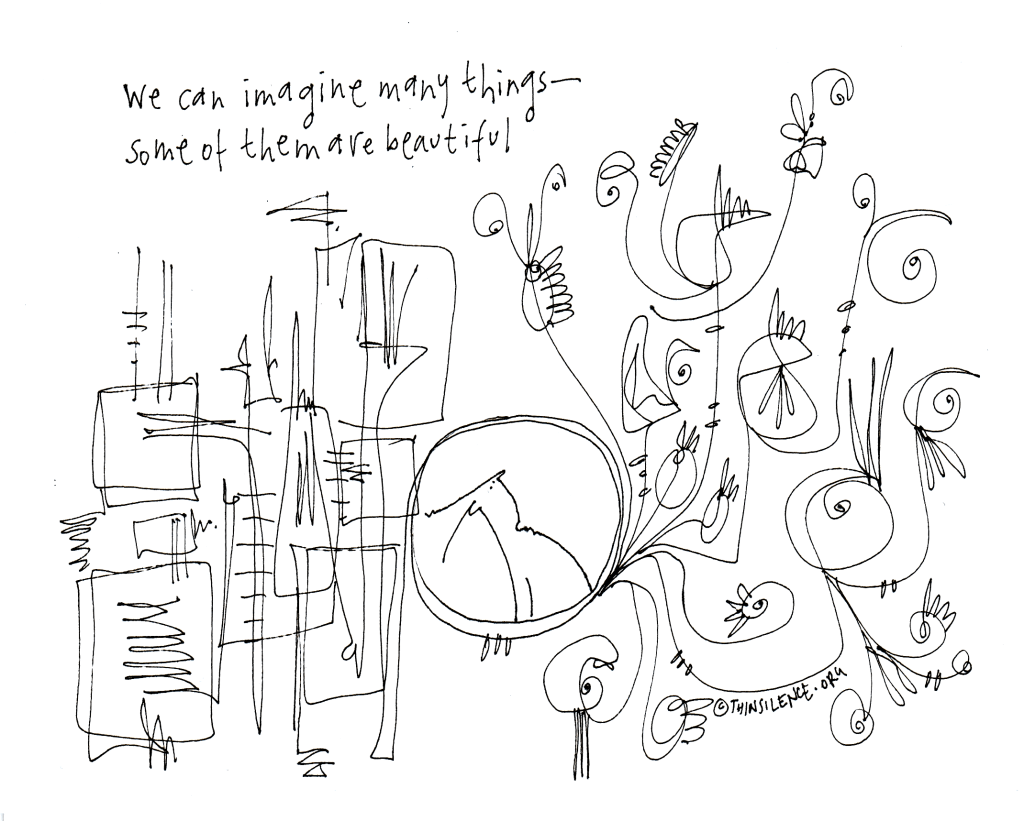 We can imagine many things—
some of them are beautiful
©THINSILENCE.ORG